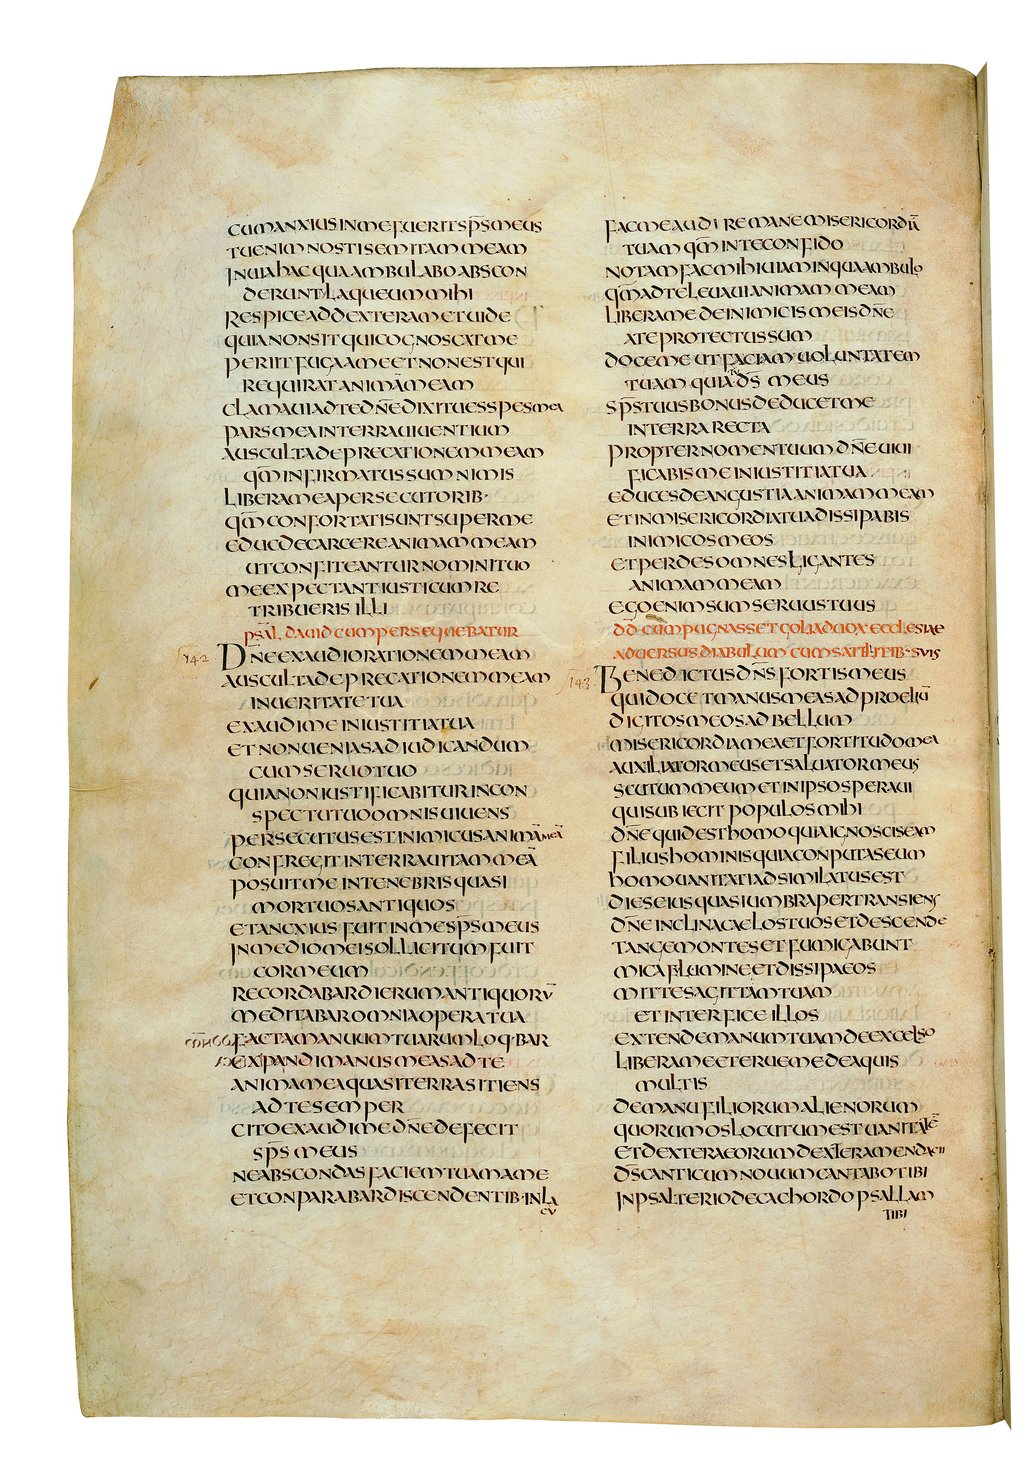 CUMANXIUSINMEFUERITSP̅SMEUS
TUENIMNOSTISEMITAMMEAM
INUIAHACQUAAMBULABOABSCON
DERUNTLAQUEUMMIHI
RESPICEADDEXTERAMETUIDE
QUIANONSITQUICOGNOSCATME
PERIITFUGAAMEETNONESTQUI
REQUIRATANIMA̅MEAM
CLAMAUIADTEDN̅EDIXITUESSPESMEA
PARSMEAINTERRAUIUENTIUM
AUSCULTADEPRECATIONEMMEAM
QM̅INFIRMATUSSUMNIMIS
LIBERAMEAPERSECUTORIB·
QM̅CONFORTATISUNTSUPERME
EDUCDECARCEREANIMAMMEAM
UTCONFITEANTURNOMINITUO
MEEXPECTANTIUSTICUMRE
TRIBUERIS ILLI
PSAL DAUIDCUMPERSEQUEBATUR
142 DN̅EEXAUDIORATIONEMMEAM
AUSCULTADEPRECATIONEMMEAM
INUERITATETUA
EXAUDIMEINIUSTITIATUA
ETNONUENIASADIUDICANDUM
CUMSERUOTUO
QUIANONIUSTIFICABITURINCON
SPECTUTUOOMNISUIUENS
PERSECUTUSESTINIMICUSANIMA̅MEA̅
CONFREGITINTERRAUITAMMEA̅
POSUITMEINTENEBRISQUASI
MORTUOSANTIQUOS
ETANCXIUSFUITINMESP̅SMEUS
INMEDIOMEISOLLICITUMFUIT
CORMEUM
RECORDABARDIERUMANTIQUORV̅
MEDITABAROMNIAOPERATUA
FACTAMANUUMTUARUMLOQ·BAR
EXPANDIMANUSMEASADTE
ANIMAMEAQUASITERRASITIENS
ADTESEMPER
CITOEXAUDIMEDN̅EDEFECIT
SP̅S MEUS
NEABSCONDASFACIEMTUAMAME
ETCONPARABARDISCENDENTIB·INLA
CV̅
FACMEAUDIREMANEMISERICORDIA̅
TUAMQM̅INTECONFIDO
NOTAMFACMIHIUIAMINQUAAMBULO
QM̅ADTELEUAUIANIMAMMEAM
LIBERAMEDEINIMICISMEISDN̅E
ATEPROTECTUSSUM
DOCEMEUTFACIAMUOLUNTATEM
TUAM QUIATUDS̅ MEUS
SP̅STUUSBONUSDEDUCETME
INTERRARECTA
PROPTERNOMENTUUMDN̅EUIUI
FICABISMEINIUSTITIATUA
EDUCESDEANGUSTIAANIMAMMEAM
ETINMISERICORDIATUADISSIPABIS
INIMICOSMEOS
ETPERDESOMNESLIGANTES
ANIMAMMEAM
EGOENIMSUMSERUUSTUUS
DD̅CUMPUGNASSETGOLIADUOXECCLESIAE
ADUERSUSDIABULUMCUMSATILITIB·SVIS
143· BENEDICTUSDN̅SFORTISMEUS
QUIDOCETMANUSMEASADPROELIU̅
DIGITOSMEOSADBELLUM
MISERICORDIAMEAETFORTITUDOMEA
AUXILIATORMEUSETSALUATORMEUS
SCUTUMMEUMETINIPSOSPERAUI
QUISUBIECITPOPULOSMIHI
DN̅EQUIDESTHOMOQUIAIGNOSCISEAM
FILIUSHOMINISQUIACONPUTASEUM
HOMOUANITATIADSIMILATUSEST
DIESEIUSQUASIUMBRAPERTRANSIENS
DN̅EINCLINACAELOSTUOSETDESCENDE
TANGEMONTESETFUMIGABUNT
MICAFLUMINEETDISSIPAEOS
MITTESAGITTAMTUAM
ETINTERFICEILLOS
EXTENDEMANUMTUAMDEEXCELSO
LIBERAMEETERUEMEDEAQUIS
MULTIS
DEMANUFILIORUMALIENORUM
QUORUMOSLOCUTUMESTUANITATE̅
ETDEXTERAEORUMDEXTERAMENDACII
DS̅CANTICUMNOUUMCANTABOTIBI
INPSALTERIODECACHORDOPSALLAM
TIBI